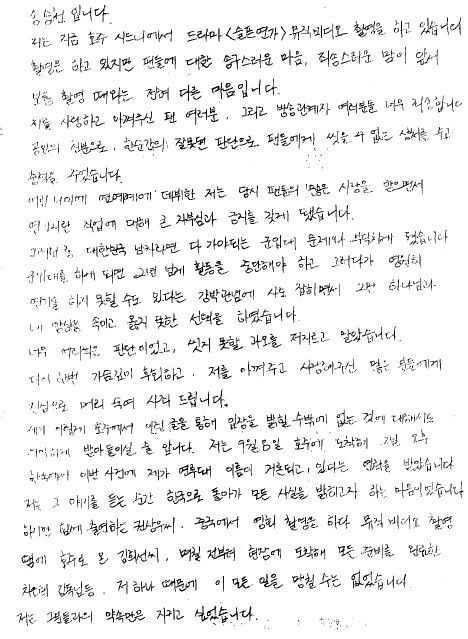 송승헌 입니다.
저는 지금 호주 시드니에서 드라마 <슬픈연가> 뮤직비디오 촬영을 하고 있습니다
촬영은 하고 있지만 팬들에 대한 송구스러운 마음, 죄송스러운 맘이 앞서
보통 촬영 때와는 전혀 다른 마음입니다.
저를 사랑하고 아껴주신 팬 여러분, 그리고 방송관계자 여러분들 너무 죄송합니다
공인의 신분으로, 한순간의 잘못된 판단으로 팬들에게 씻을 수 없는 상처를 주고
충격을 주었습니다.
어린 나이에 연예계에 데뷔한 저는 당시 팬들의 많은 사랑을 받으면서
연기자란 직업에 대해 큰 자부심과 긍지를 갖게 됐습니다.
그러던 중, 대한민국 남자라면 다 가야되는 군입대 문제와 부딪히게 됐습니다
군입대를 하게 되면 2년 넘게 활동을 중단해야 하고 그러다가 영원히
연기를 하지 못할 수도 있다는 강박관념에 사로 잡히면서 그만 하나님과
내 양심을 속이고 옳지 못한 선택을 하였습니다.
너무 어리석은 판단이었고, 씻지 못할 과오를 저지르고 말았습니다.
다시 한번 가슴깊이 후회하고, 저를 아껴주고 사랑해주신 많은 분들에게
진심으로 머리 숙여 사죄 드립니다.
제가 이렇게 호주에서 대신 글을 통해 입장을 밝힐 수밖에 없는 것에 대해서도
어이하게 받아들이실 줄 압니다. 저는 9월 6일 호주에 도착해 그날 오후
한국에서 이번 사건에 제가 연루돼 이름이 거론되고 있다는 연락을 받았습니다
저는 그 얘기를 듣는 순간 한국으로 돌아가 모든 사실을 밝히고자 하는 마음이었습니다
하지만 함께 출연하는 권상우씨, 중국에서 영화 촬영을 하다 뮤직 비디오 촬영
땜에 호주로 온 김희선씨, 며칠 전부터 현장에 도착해 모든 준비를 완료한
차은택 감독님등. 저 하나 때문에 이 모든 일을 망칠 수는 없었습니다
저는 그분들과의 약속만은 지키고 싶었습니다.